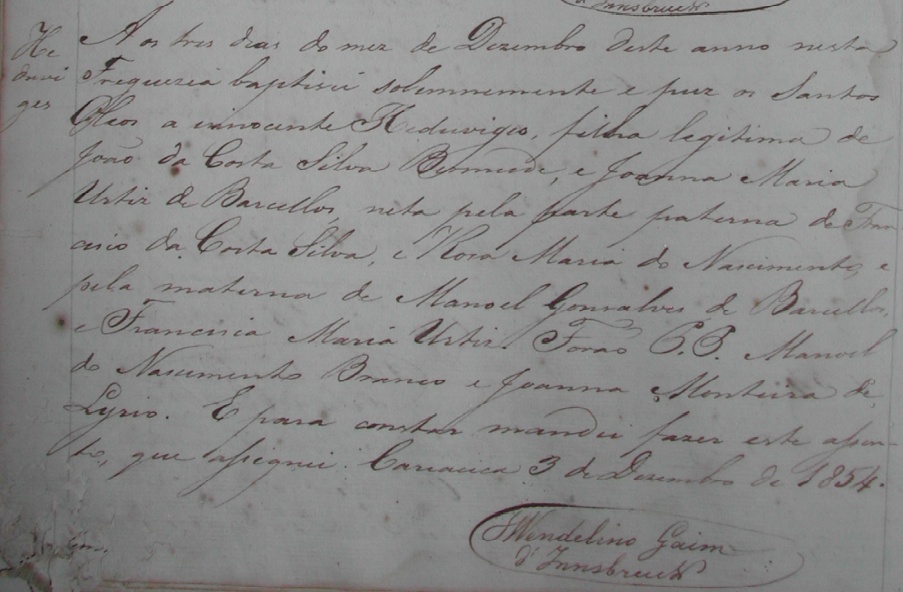 d'Innsbruck
He
duvi
ges
Aos tres dias do mez de Dezembro deste anno nesta
Freguezia baptisei solemnemente e puz os Santos
Oleos a innocente Heduviges, filha legitima de
João da Costa Silva Bermude, e Joanna Maria
Urtiz de Barcellos, neta pela parte paterna de Fran
cisco da Costa Silva, e Rosa Maria do Nascimento, e
pela materna de Manoel Gonsalves de Barcellos,
e Francisca Maria Urtiz. Forão P.P. Manoel
do Nascimento Branco e Joanna Monteira de
Lyrio. E para constar mandei fazer este assen-
to, que assignei. Cariacica 3 de Dezembro de 1854.
Wendelino Gaim
d'Innsbruck